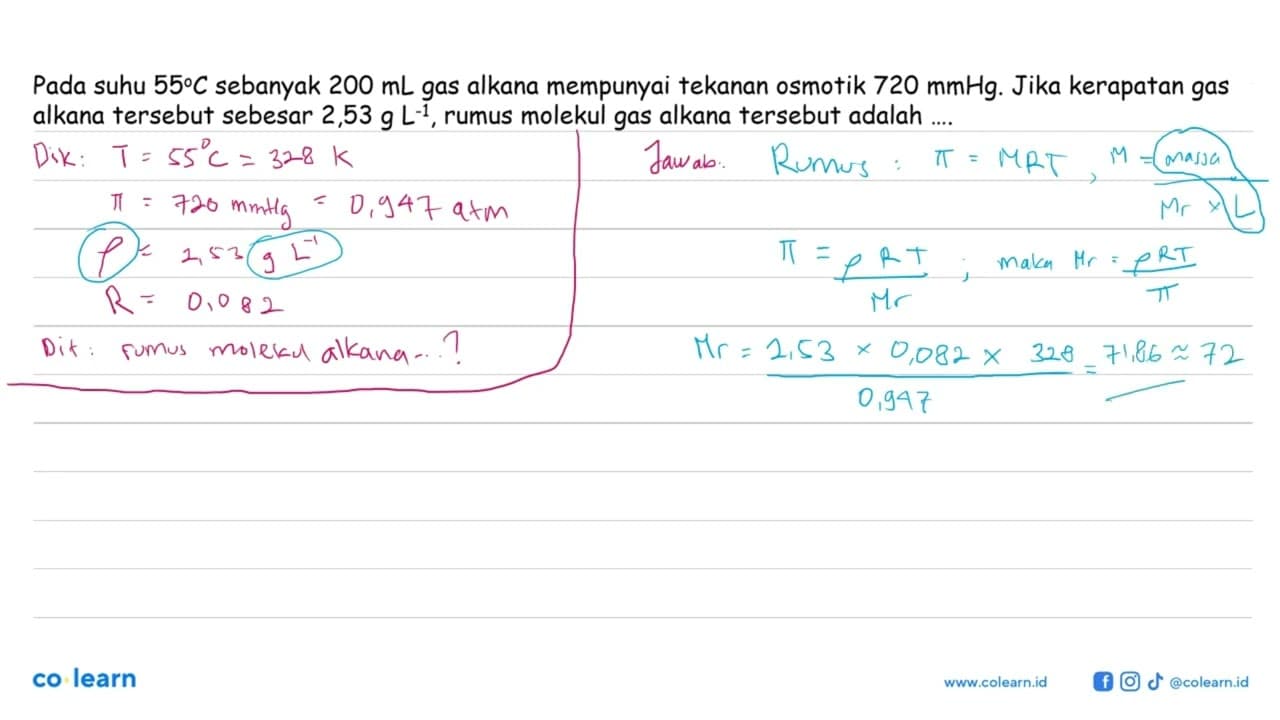 Pada suhu 55⁰C sebanyak 200 mL gas alkana mempunyai tekanan osmotik 720 mmHg. Jika kerapatan gas
alkana tersebut sebesar 2,53 g L⁻¹, rumus molekul gas alkana tersebut adalah ....
Dik: T = 55°C = 328 K
π = 720 mmHg = 0,947 atm
ρ = 2,53 g L⁻¹
R = 0,082
Dit: rumus molekul alkana...?
Jawab: Rumus : π = MRT , M = massa / Mr × L
π = ρ R T / Mr ; maka Mr = ρRT / π
Mr = 2,53 × 0,082 × 328 / 0,947 = 71,86 ≈ 72
co·learn
www.colearn.id
@colearn.id